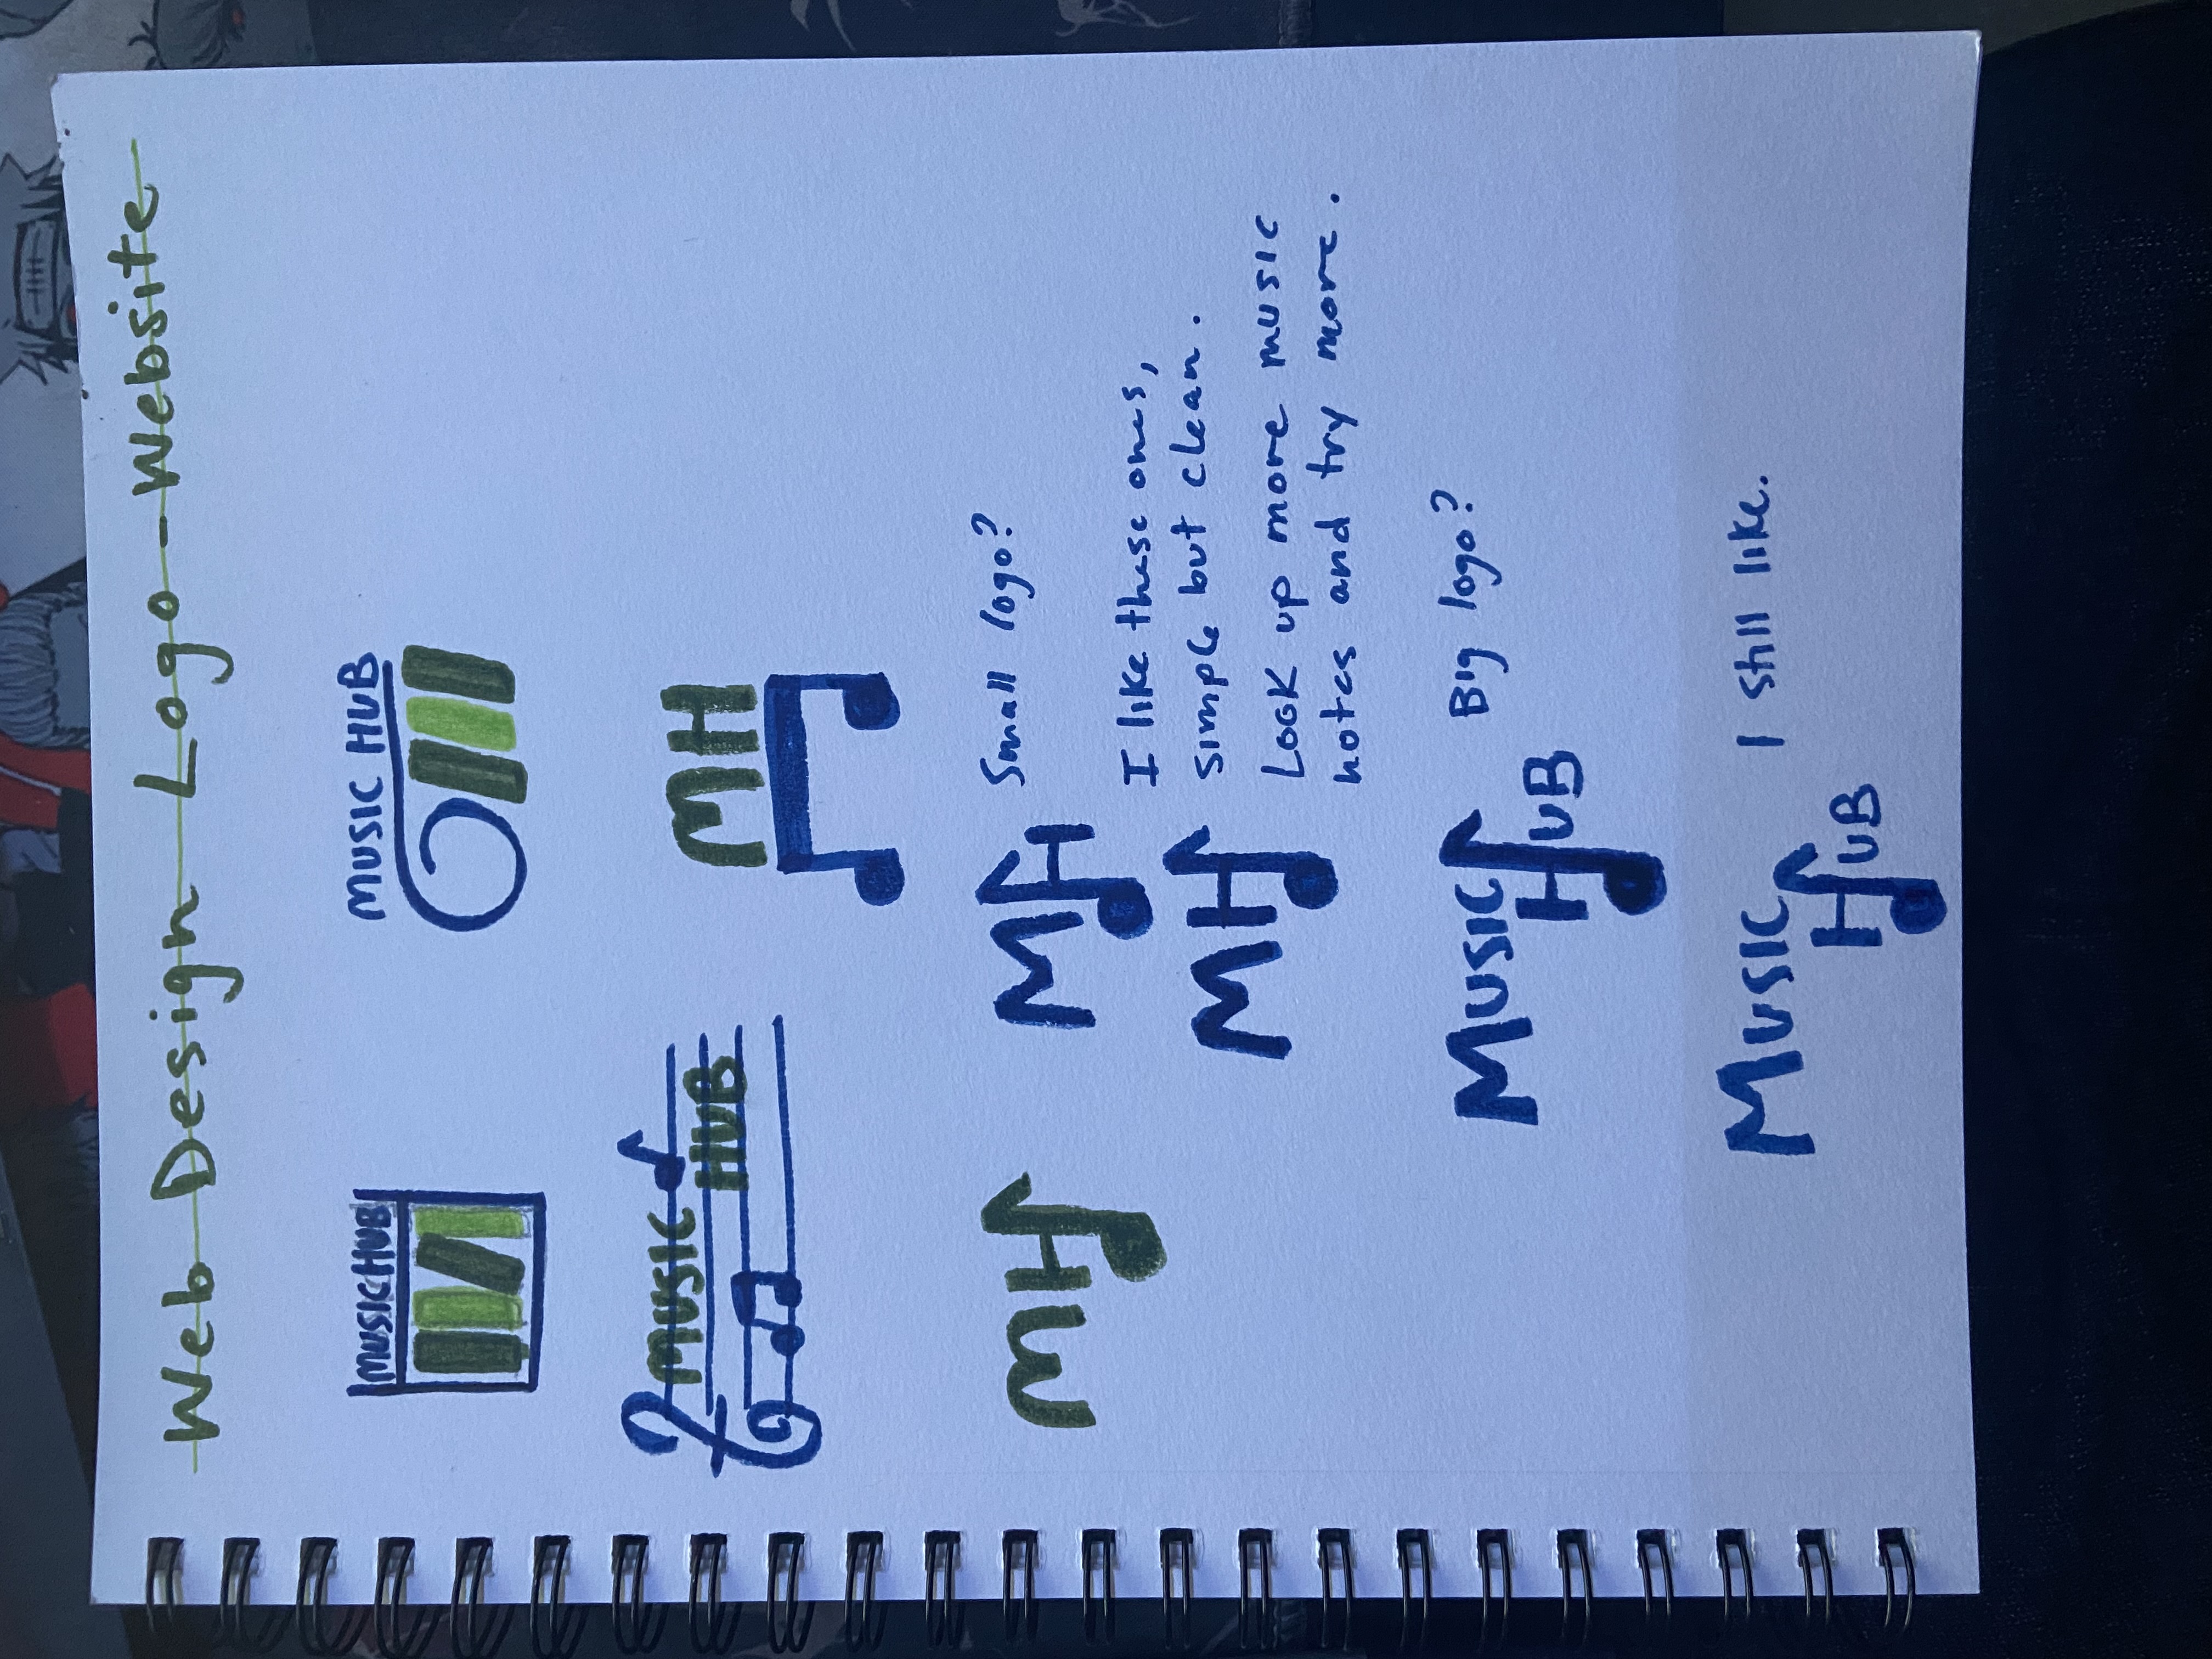 Web Design Logo - Website
MUSIC HUB
MUSIC HUB
MUSIC
HUB
MH
MH
MH
Small logo?
I like these ones,
simple but clean.
MH
Look up more music
notes and try more.
MUSIC
HUB
Big logo?
MUSIC
HUB
I still like.